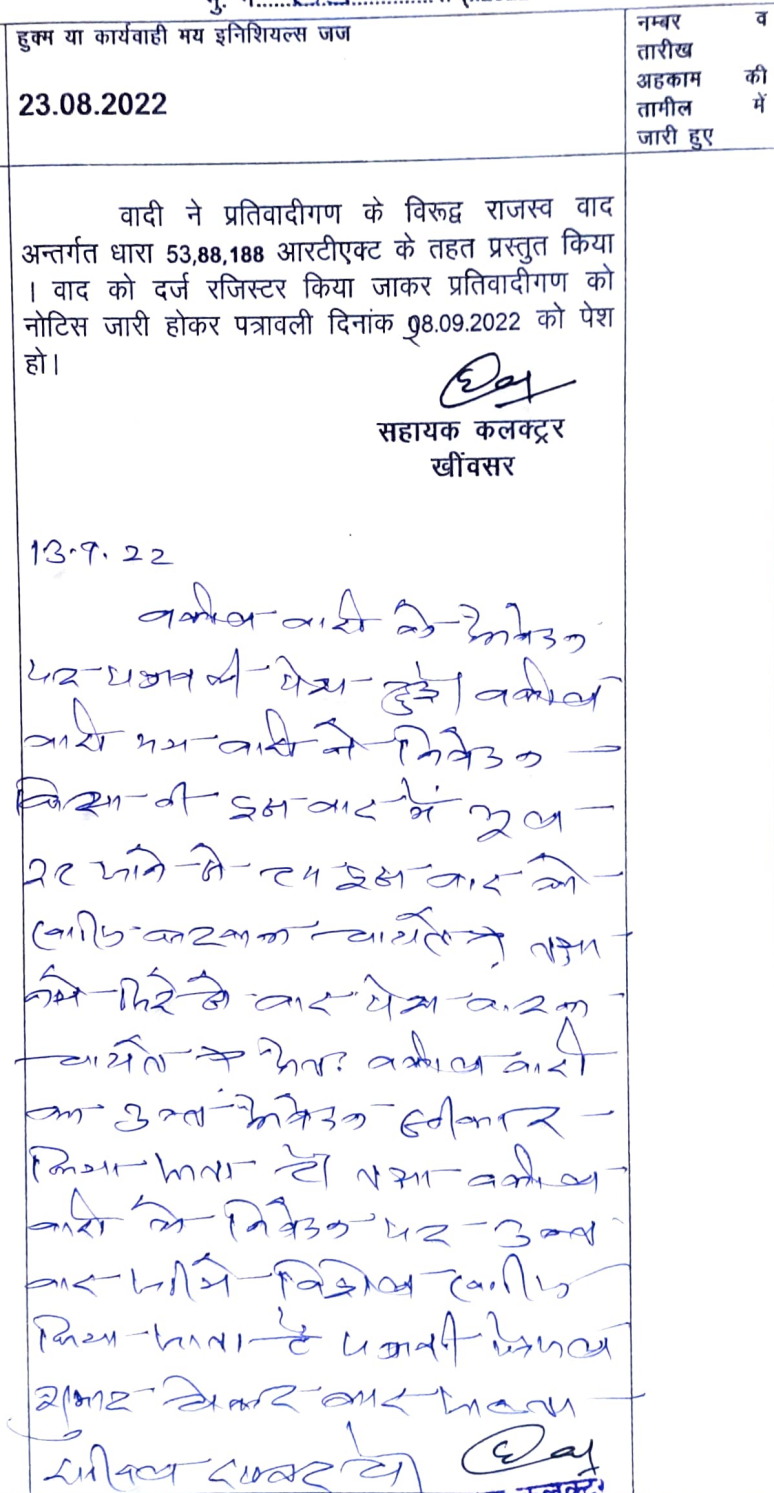 हुक्म या कार्यवाही मय इनिशियल्स जज
23.08.2022
नम्बर व
तारीख
अहकाम की
तामील में
जारी हुए
वादी ने प्रतिवादीगण के विरूद्व राजस्व वाद
अन्तर्गत धारा 53,88,188 आरटीएक्ट के तहत प्रस्तुत किया
। वाद को दर्ज रजिस्टर किया जाकर प्रतिवादीगण को
नोटिस जारी होकर पत्रावली दिनांक 08.09.2022 को पेश
हो।
सहायक कलक्ट्रर
खींवसर
13.9.22
वकील वादी के आवेदन
पर पत्रावली पेश हुई। वकील
वादी मय वादी ने निवेदन
किया की इस वाद में भूल
रह जाने से हम इस वाद को
खारीज करवाना चाहते है तथा
नये सिरे से वाद पेश करना
चाहते है अतः वकील वादी
का उक्त आवेदन स्वीकार
किया जाता है। तथा वकील
वादी के निवेदन पर उक्त
वाद खारीज
किया जाता है पत्रावली फैसल
शुमार होकर बाद
दाखिल दफ्तर हो।